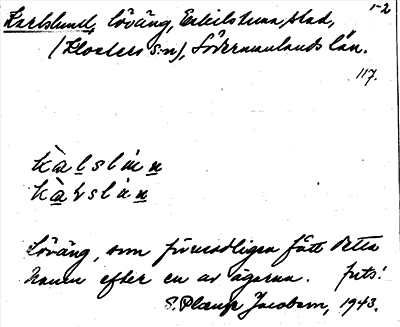 Karlslund, löväng, Eskilstuna stad, 1-2
(Klosters s:n), Södermanlands län.
117.
kàlslún
kàlslún
Löväng, som förmodligen fått detta
namn efter en av ägarna.
S. Jacobson, 1943.